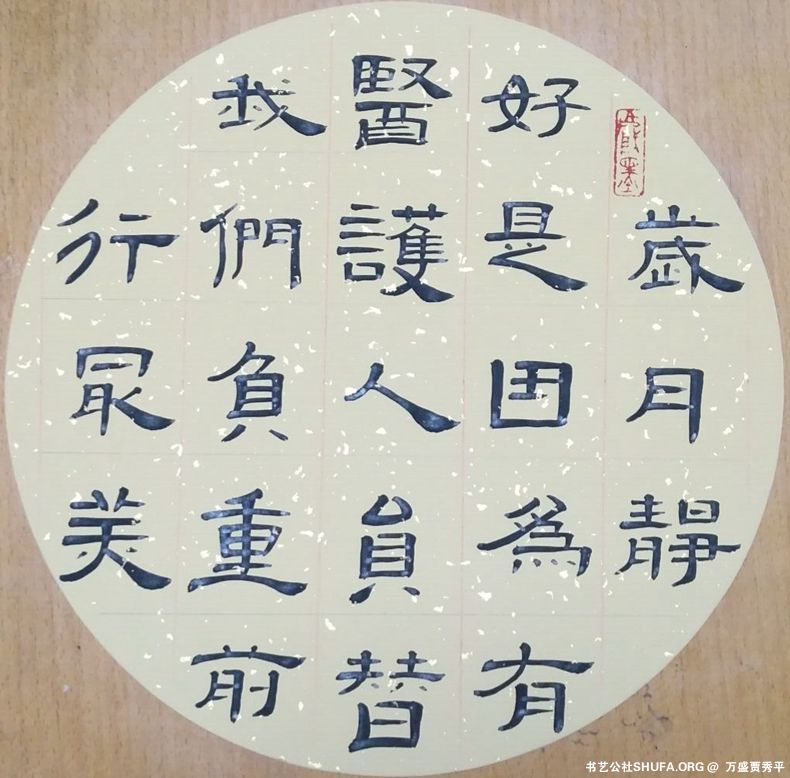 歲月靜
好是因為有
醫護人員替
我們負重前
行最美
書艺公社SHUFA.ORG @ 万盛贾秀平